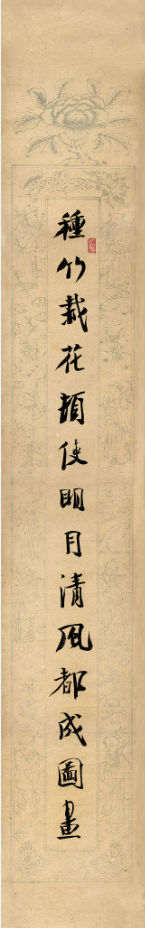 種竹栽花頓使明月清風都成圖畫